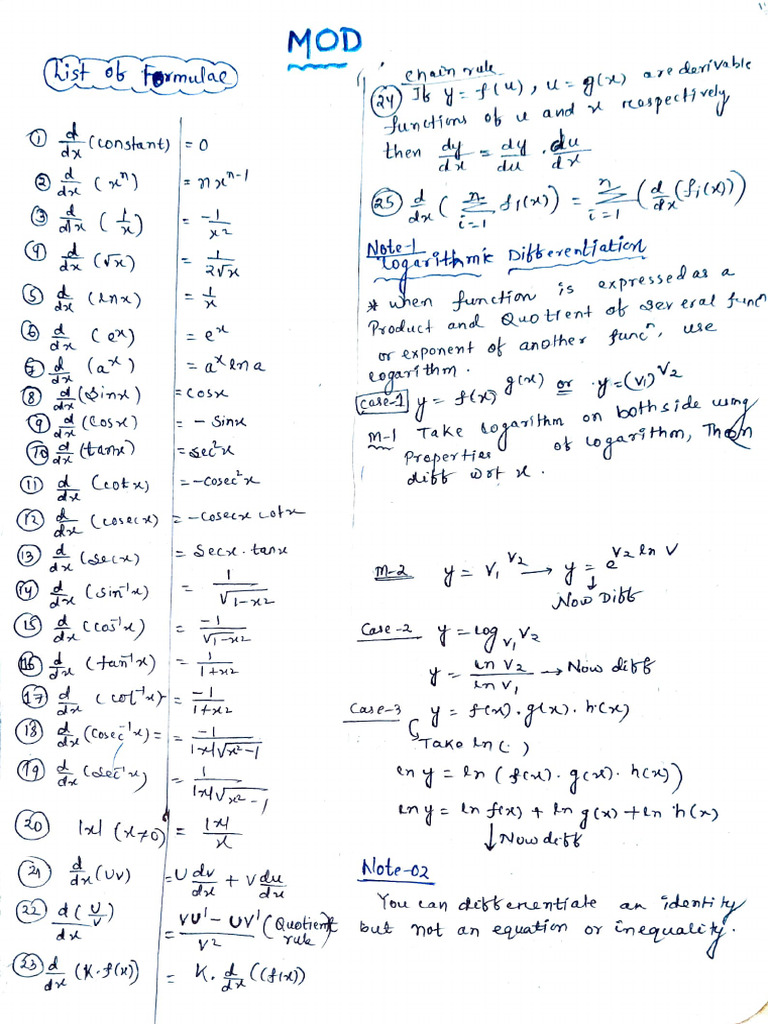 MOD
List of Formulae
① d/dx (constant) = 0
② d/dx (xⁿ) = nxⁿ⁻¹
③ d/dx (1/x) = -1/x²
④ d/dx (√x) = 1/2√x
⑤ d/dx (lnx) = 1/x
⑥ d/dx (eˣ) = eˣ
⑦ d/dx (aˣ) = aˣ lna
⑧ d/dx (sinx) = cosx
⑨ d/dx (cosx) = - sinx
⑩ d/dx (tanx) = sec²x
⑪ d/dx (cotx) = -cosec²x
⑫ d/dx (cosecx) = -cosecx cotx
⑬ d/dx (secx) = secx·tanx
⑭ d/dx (sin⁻¹x) = 1/√1-x²
⑮ d/dx (cos⁻¹x) = -1/√1-x²
⑯ d/dx (tan⁻¹x) = 1/1+x²
⑰ d/dx (cot⁻¹x) = -1/1+x²
⑱ d/dx (cosec⁻¹x) = = -1/|x|√x²-1
⑲ d/dx (sec⁻¹x) = 1/|x|√x²-1
⑳ |x| (x≠0) = |x|/x
㉑ d/dx (UV) = U dv/dx + V du/dx
㉒ d(U/V)/dx = VU' - UV'/V² (Quotient rule)
㉓ d/dx (K·f(x)) = K· d/dx ((f(x))
Chain rule
㉔ If y = f(u), u = g(x) are derivable
functions of u and x respectively
then dy/dx = dy/du · du/dx
㉕ d/dx ( n Σ i=1 fi(x)) = n Σ i=1 (d/dx (fi(x))
Note-1
Logarithmic Differentiation
* when function is expressed as a
Product and Quotient of several funcⁿ
or exponent of another funcⁿ, use
logarithm.
Case-1 y = f(x)^g(x) or y=(V₁)^V₂
M-1 Take logarithm on bothside using
Properties of logarithm, Then
diff wrt x.
M-2 y = V₁^V₂ → y = e^V₂ ln V
↓
Now Diff
Case-2 y = log_V₁ V₂
y = ln V₂/ln V₁ → Now diff
Case-3 y = f(x)·g(x)·h(x)
Take ln(·)
ln y = ln (f(x)·g(x)·h(x))
ln y = ln f(x) + ln g(x) + ln h(x)
↓ Now diff
Note-02
You can differentiate an identity
but not an equation or inequality.